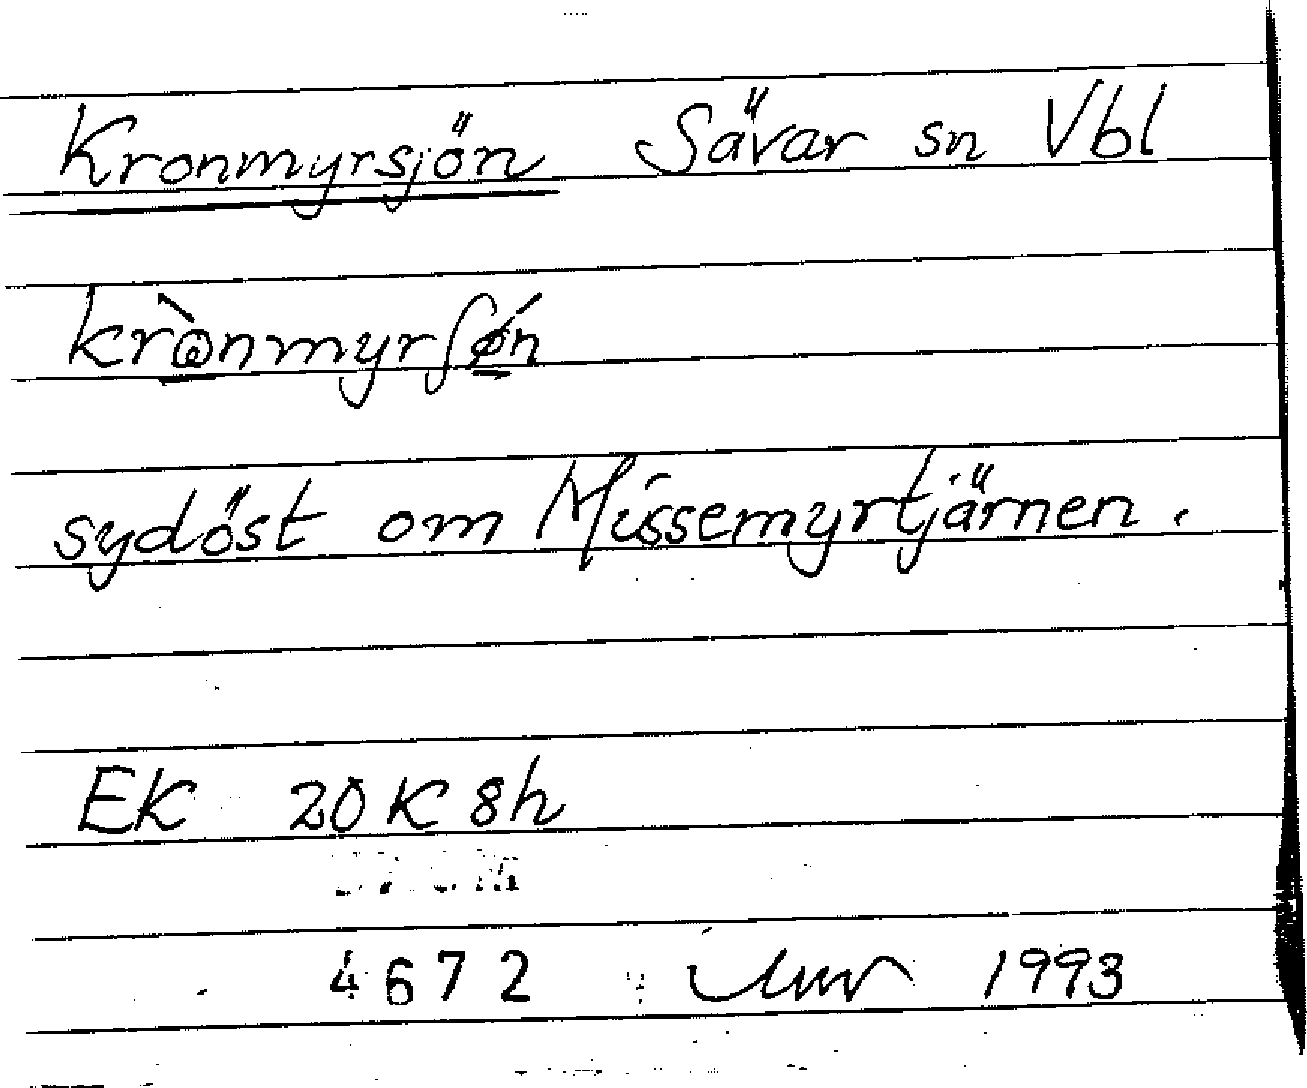 Kronmyrsjön Sävar sn Vbl
krònmyrʃǿn
sydöst om Missemyrtjärnen.
EK 20K8h
4672 1993